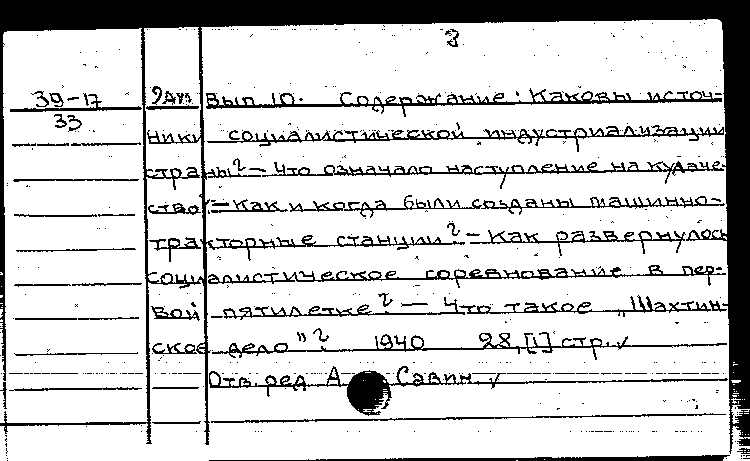 3
39-17 9Ат Вып. 10. Содержание: Каковы источ-
33
ники социалистической индустриализации
страны? — Что означало наступление на кулаче-
ство? — Как и когда были созданы машинно-
тракторные станции? — Как развернулось
социалистическое соревнование в пер-
вой пятилетке? — Что такое „Шахтин-
ское дело"? 1940 28, [1] стр. ✓
Отв. ред. А Савин. ✓